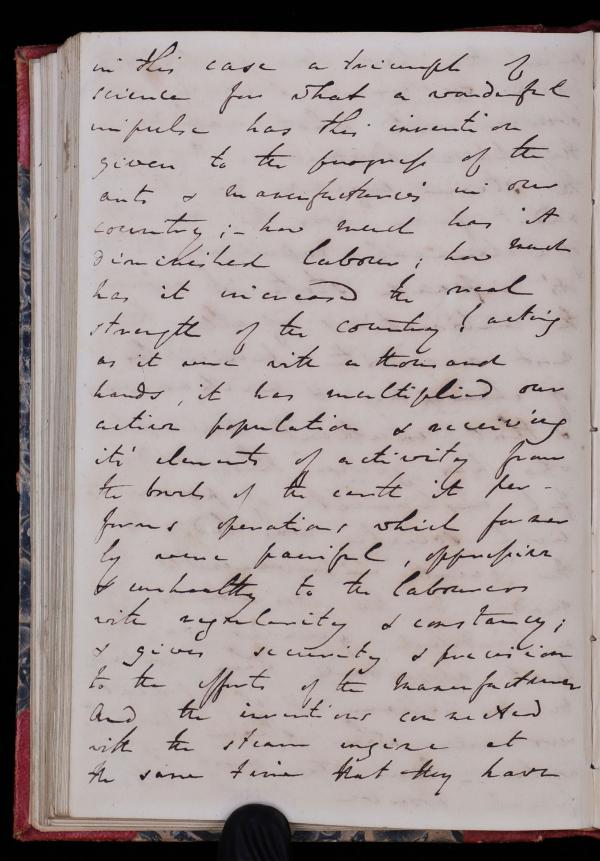 in this case a triumph of
science for what a wonderful
impulse has this invention
given to the progress of the
arts & manufactures in our
country; - how much has it
diminished labour; how much
has it increased the real
strength of the country! acting
as it were with a thousand
hands, it has multiplied our
active population & receiving
its' elements of activity from
the bowels of the earth it per-
forms operations which former
ly were painful, oppressive
& unhealthy to the labourers
with regularity & constancy;
& gives security & precision
to the efforts of the manufacturer
And the inventions connected
with the steam engine at
the same time that they have